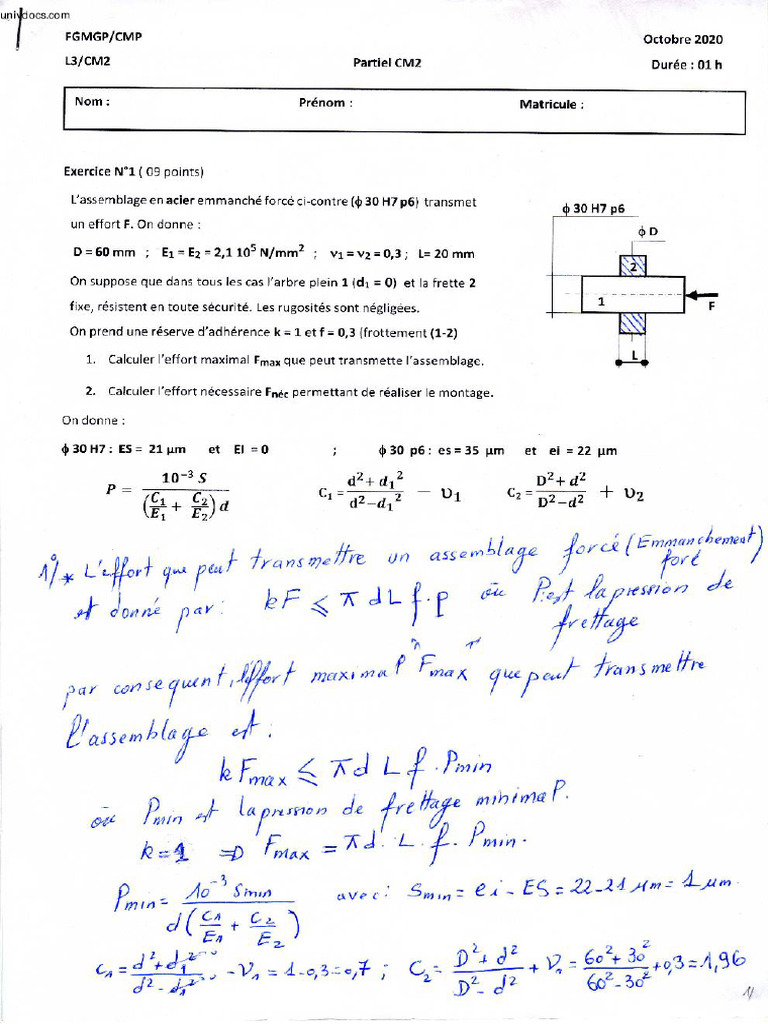 univdocs.com
FGMGP/CMP
Octobre 2020
L3/CM2
Partiel CM2
Durée : 01 h
Nom :
Prénom :
Matricule :
Exercice N°1 ( 09 points)
L'assemblage en acier emmanché forcé ci-contre (ϕ 30 H7 p6) transmet
un effort F. On donne :
D = 60 mm ; E₁ = E₂ = 2,1 10⁵ N/mm² ; ν₁ = ν₂ = 0,3 ; L= 20 mm
On suppose que dans tous les cas l'arbre plein 1 (d₁ = 0) et la frette 2
fixe, résistent en toute sécurité. Les rugosités sont négligées.
On prend une réserve d'adhérence k = 1 et f = 0,3 (frottement (1-2)
1. Calculer l'effort maximal Fmax que peut transmette l'assemblage.
2. Calculer l'effort nécessaire Fnéc permettant de réaliser le montage.
ϕ 30 H7 p6
ϕ D
2
1
F
L
On donne :
ϕ 30 H7 : ES = 21 µm et EI = 0 ; ϕ 30 p6 : es = 35 µm et ei = 22 µm
P = 10⁻³ S / ((C₁/E₁ + C₂/E₂) d) C₁ = (d² + d₁²)/(d² − d₁²) − υ₁ C₂ = (D² + d²)/(D² − d²) + υ₂
1°/ * L'effort que peut transmettre un assemblage forcé (Emmanchement forcé
est donné par : kF ⩽ π d L f . p où P. est la pression de
frettage
par consequent, l'effort maximal Fmax que peut transmettre
l'assemblage est :
k Fmax ⩽ π d L f . Pmin
où Pmin est la pression de frettage minimal.
k = 1 ⇒ Fmax = π d . L . f . Pmin .
Pmin = 10⁻³ Smin / (d (C1/E1 + C2/E2)) avec : Smin = ei - ES = 22 - 21 µm = 1 µm.
C₁ = (d² + d₁²)/(d² - d₁²) - ν₁ = 1 - 0,3 = 0,7 ; C₂ = (D² + d²)/(D² - d²) + ν₁ = (60² + 30²)/(60² - 30²) + 0,3 = 1,96
1/